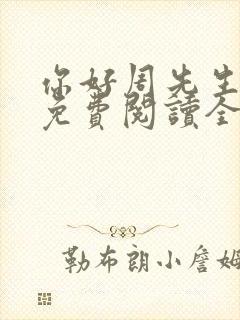 你好周先生
免費閱讀全
勒布朗小詹姆